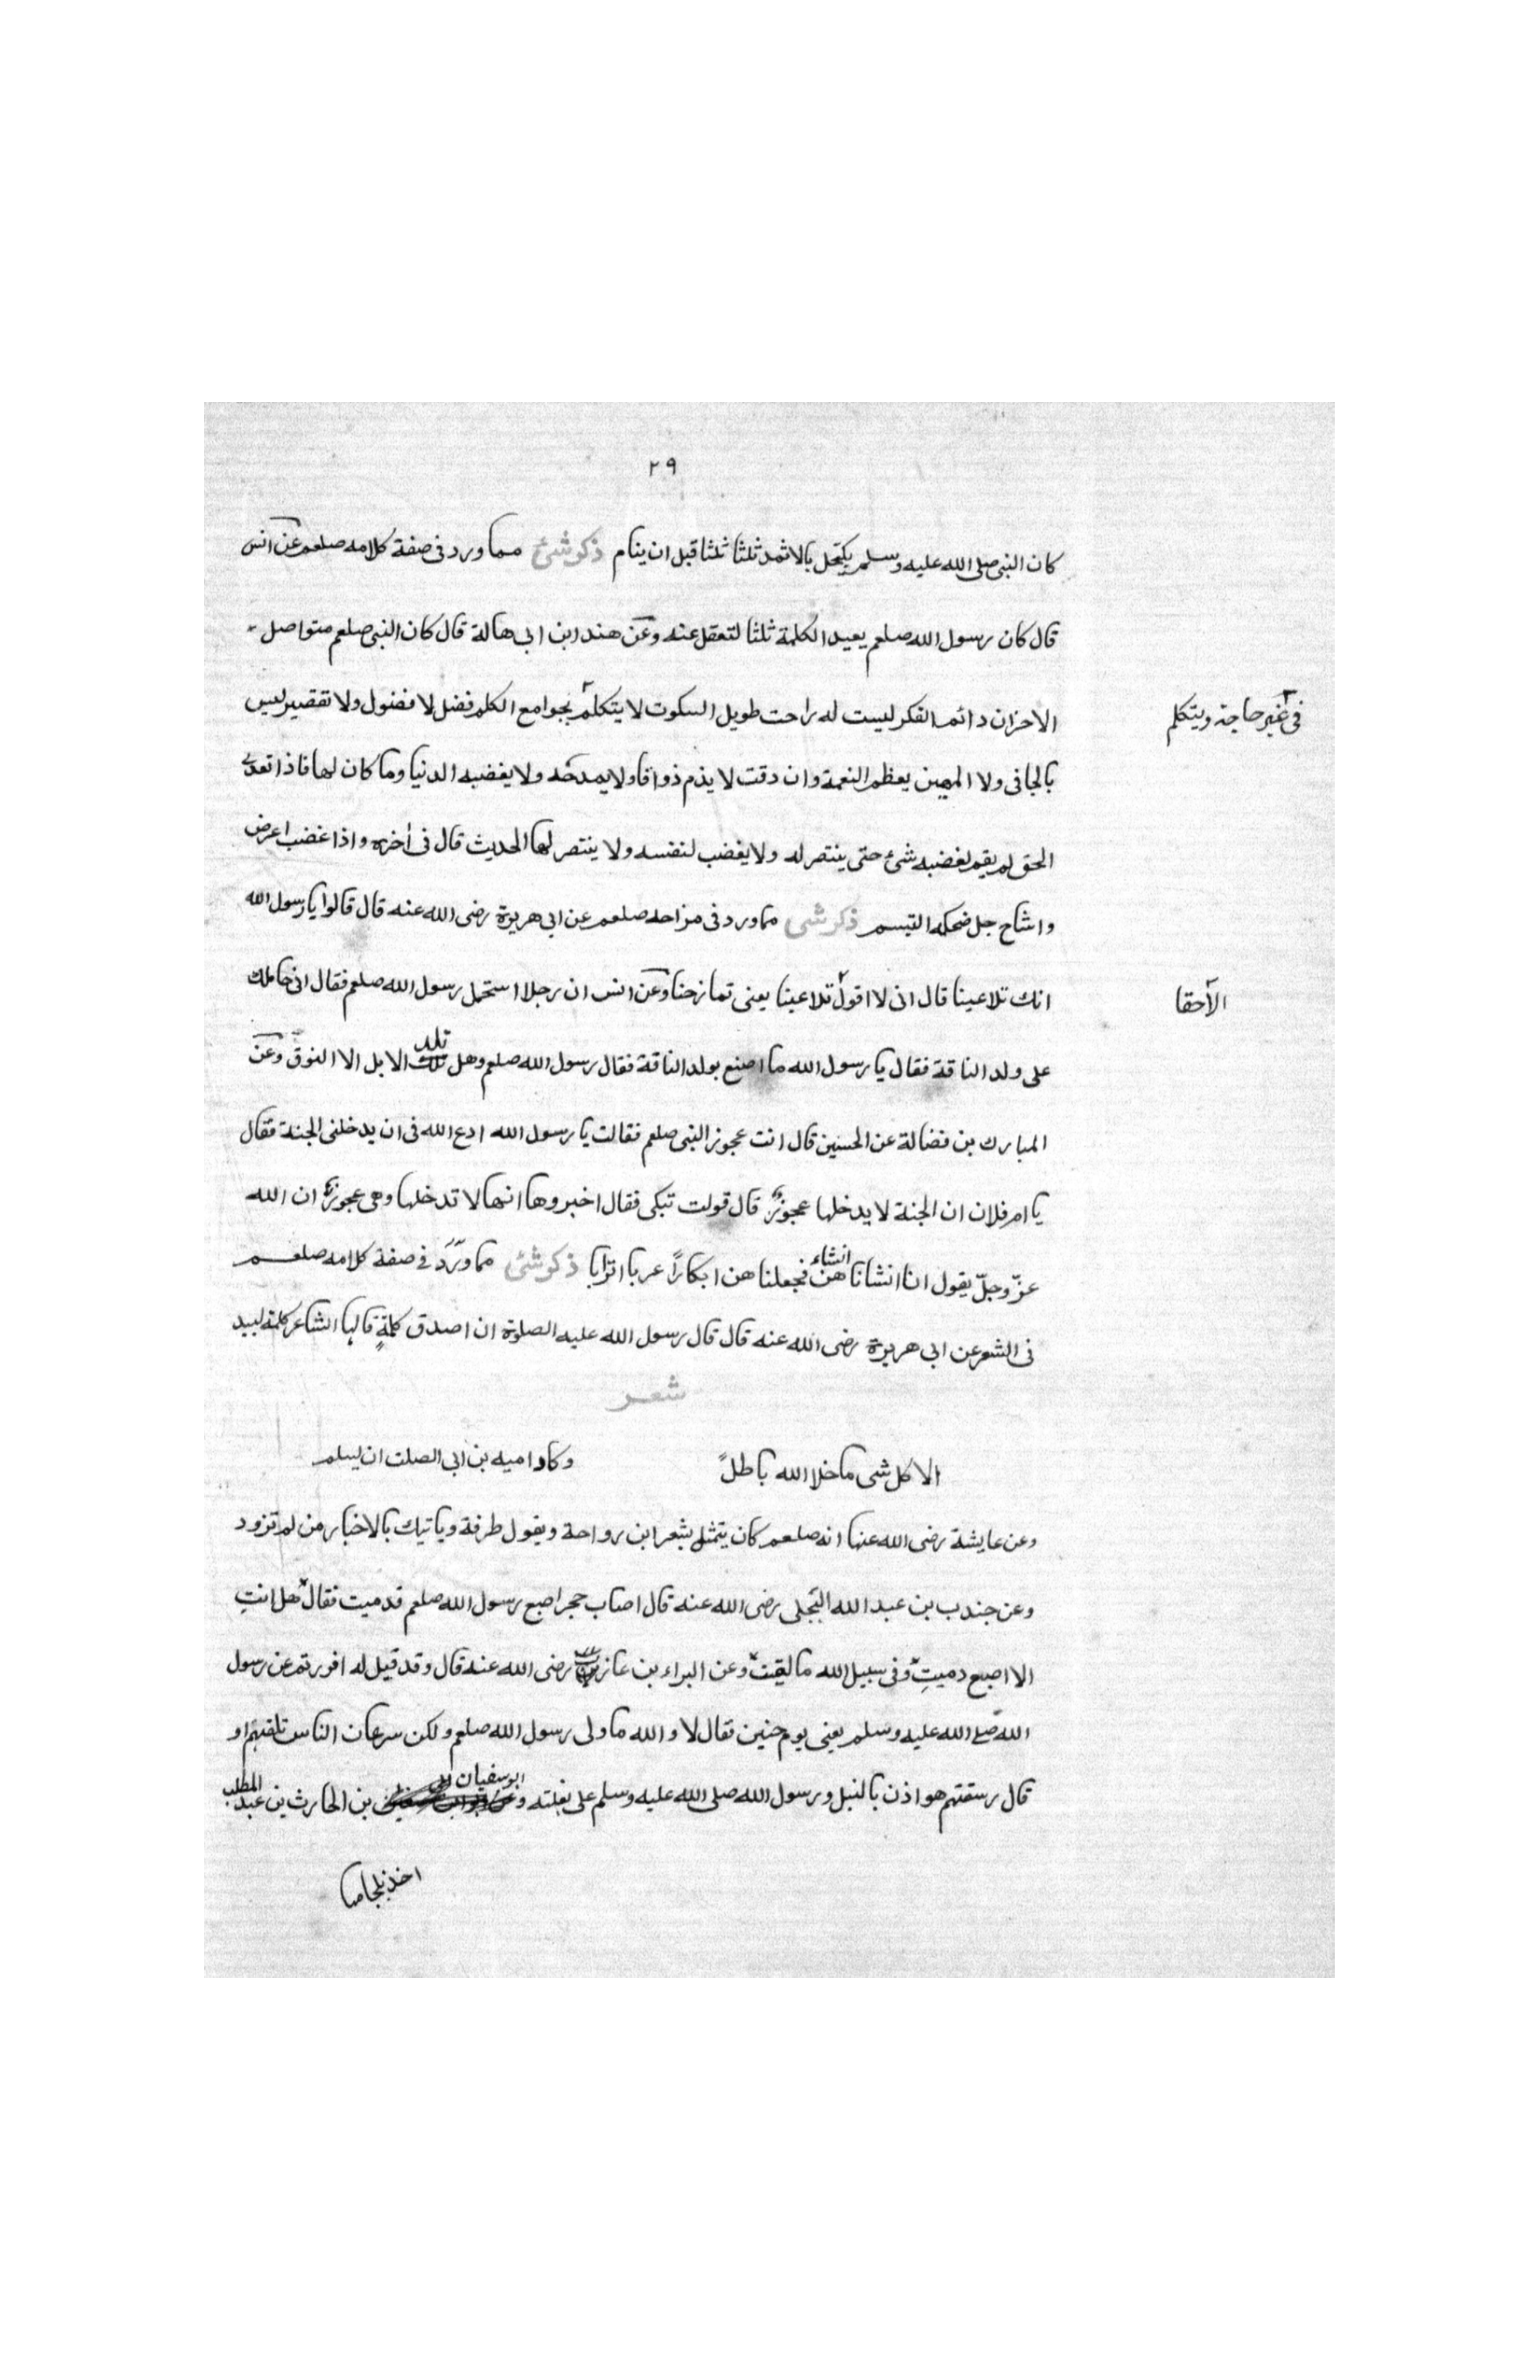 ٢٩
كان النبى صلى الله عليه وسلم يكتحل بالاثمد ثلثا ثلثا قبل ان ينام ذكر شئ مما ورد فى صفة كلامه صلعم عن انس
قال كان رسول الله صلعم يعيد الكلمة ثلثا لتعقل عنه وعن هند ابن ابى هالة قال كان النبى صلعم متواصل
الاحزان دائما الفكر ليست له راحت طويل السكوت لا يتكلم بجوامع الكلم فضل لا فضول ولا تقصير ليس
فى غير حاجة ويتكلم
بالجافى ولا المهين يعظم النعمة وان دقت لا يذم ذواقا ولا يمدحه ولا يغضبه الدنيا وما كان لها فاذا تعدى
الحق لم يقم لغضبه شئ حتى ينتصر له ولا يغضب لنفسه ولا ينتصر لها الحديث قال فى اخره واذا غضب اعرض
واشاح جل ضحكه التبسم ذكر شى مما ورد فى مزاحه صلعم عن ابى هريرة رضى الله عنه قال قالوا يا رسول الله
انك تلاعبنا قال انى لا اقول تلاعبنا يعنى تمازحنا وعن انس ان رجلا استحمل رسول الله صلعم فقال انى حاملك
الا حقا
على ولد الناقة فقال يا رسول الله ما اصنع بولد الناقة فقال رسول الله صلعم وهل تلد الابل الا النوق وعن
المبارك بن فضالة عن الحسين قال انت عجوز النبى صلعم فقالت يا رسول الله ادع الله فى ان يدخلنى الجنة فقال
يا ام فلان ان الجنة لا يدخلها عجوز قال فولت تبكى فقال اخبروها انها لا تدخلها وهى عجوز ان الله
عزّ وجلّ يقول انا انشاناهن انشاء فجعلناهن ابكارًا عربا اترابا ذكر شئ مما ورد فى صفة كلامه صلعم
فى الشعر عن ابى هريرة رضى الله عنه قال قال رسول الله عليه الصلوة ان اصدق كلمةٍ قالها الشاعر كلمة لبيد
شعر
الا كل شى ما خلا الله باطلً وكاد اميه بن ابى الصلت ان يسلم
وعن عايشة رضى الله عنها انه صلعم كان يتمثل بشعر ابن رواحة ويقول طرفة وياتيك بالاخبار من لم تزود
وعن جندب بن عبد الله البجلى رضى الله عنه قال اصاب حجر اصبع رسول الله صلعم فدميت فقال هل انتِ
الا اصبع دميتِ وفى سبيل الله ما لقيت وعن البراء بن عازب رضى الله عنه قال وقد قيل له افررتم عن رسول
الله صلى الله عليه وسلم يعنى يوم حنين فقال لا والله ما ولى رسول الله صلعم ولكن سرعان الناس تلقتهم او
قال رسقتهم هواذن بالنبل ورسول الله صلى الله عليه وسلم على بغلته و ابو سفيان بن الحارث بن عبد المطلب
اخذ بلجامها